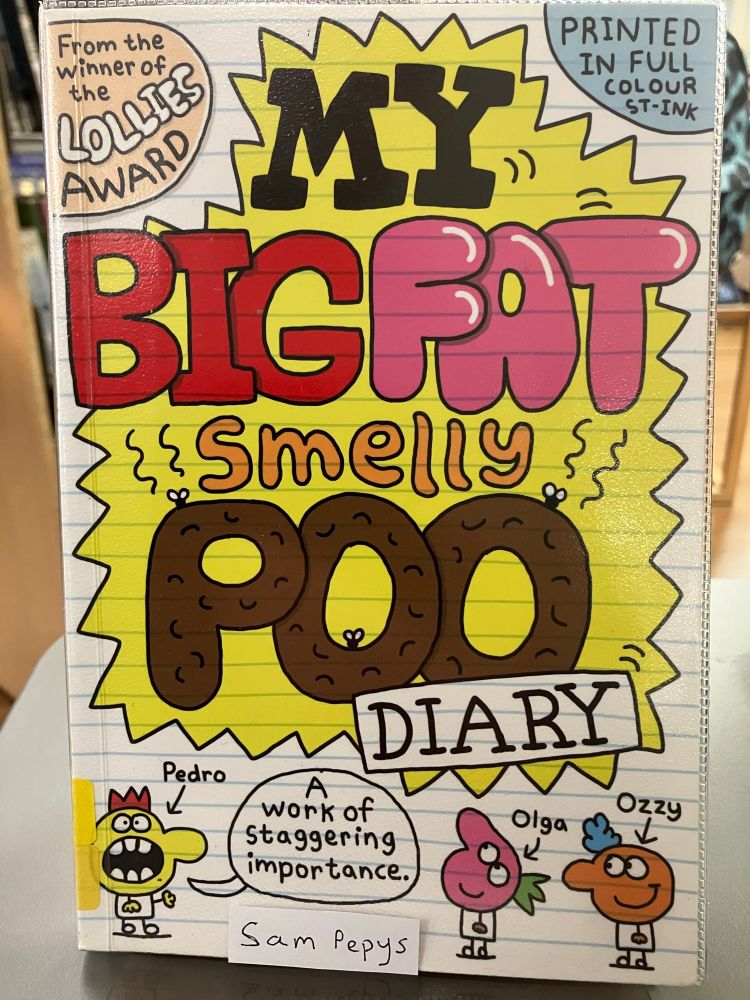 From the
winner of
the
LOLLIES
AWARD
PRINTED
IN FULL
COLOUR
ST-INK
MY
BIG FAT
smelly
POO
DIARY
Pedro
A
work of
staggering
importance.
Olga
Ozzy
Sam Pepys